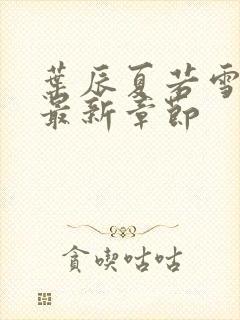 葉辰夏若雪
最新章節
貪喫咕咕